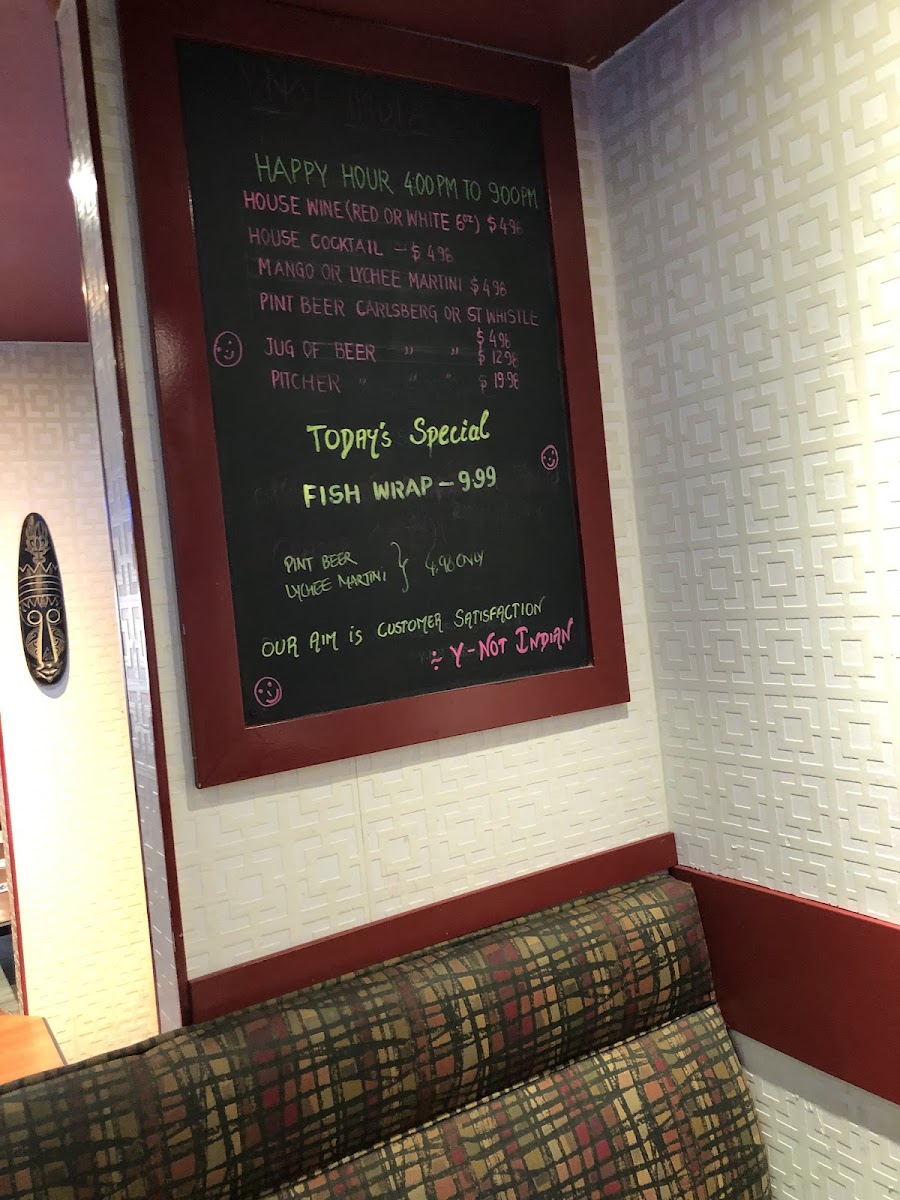 HAPPY HOUR 4:00PM TO 9:00PM
HOUSE WINE (RED OR WHITE 6oz) $4.96
HOUSE COCKTAIL — $4.96
MANGO OR LYCHEE MARTINI $4.96
PINT BEER CARLSBERG OR ST WHISTLE
$4.96
JUG OF BEER " " $12.96
PITCHER " " " $19.96
TODAY'S Special
FISH WRAP — 9.99
PINT BEER
LYCHEE MARTINI } 4.96 ONLY
OUR AIM IS CUSTOMER SATISFACTION
÷ Y-NOT INDIAN